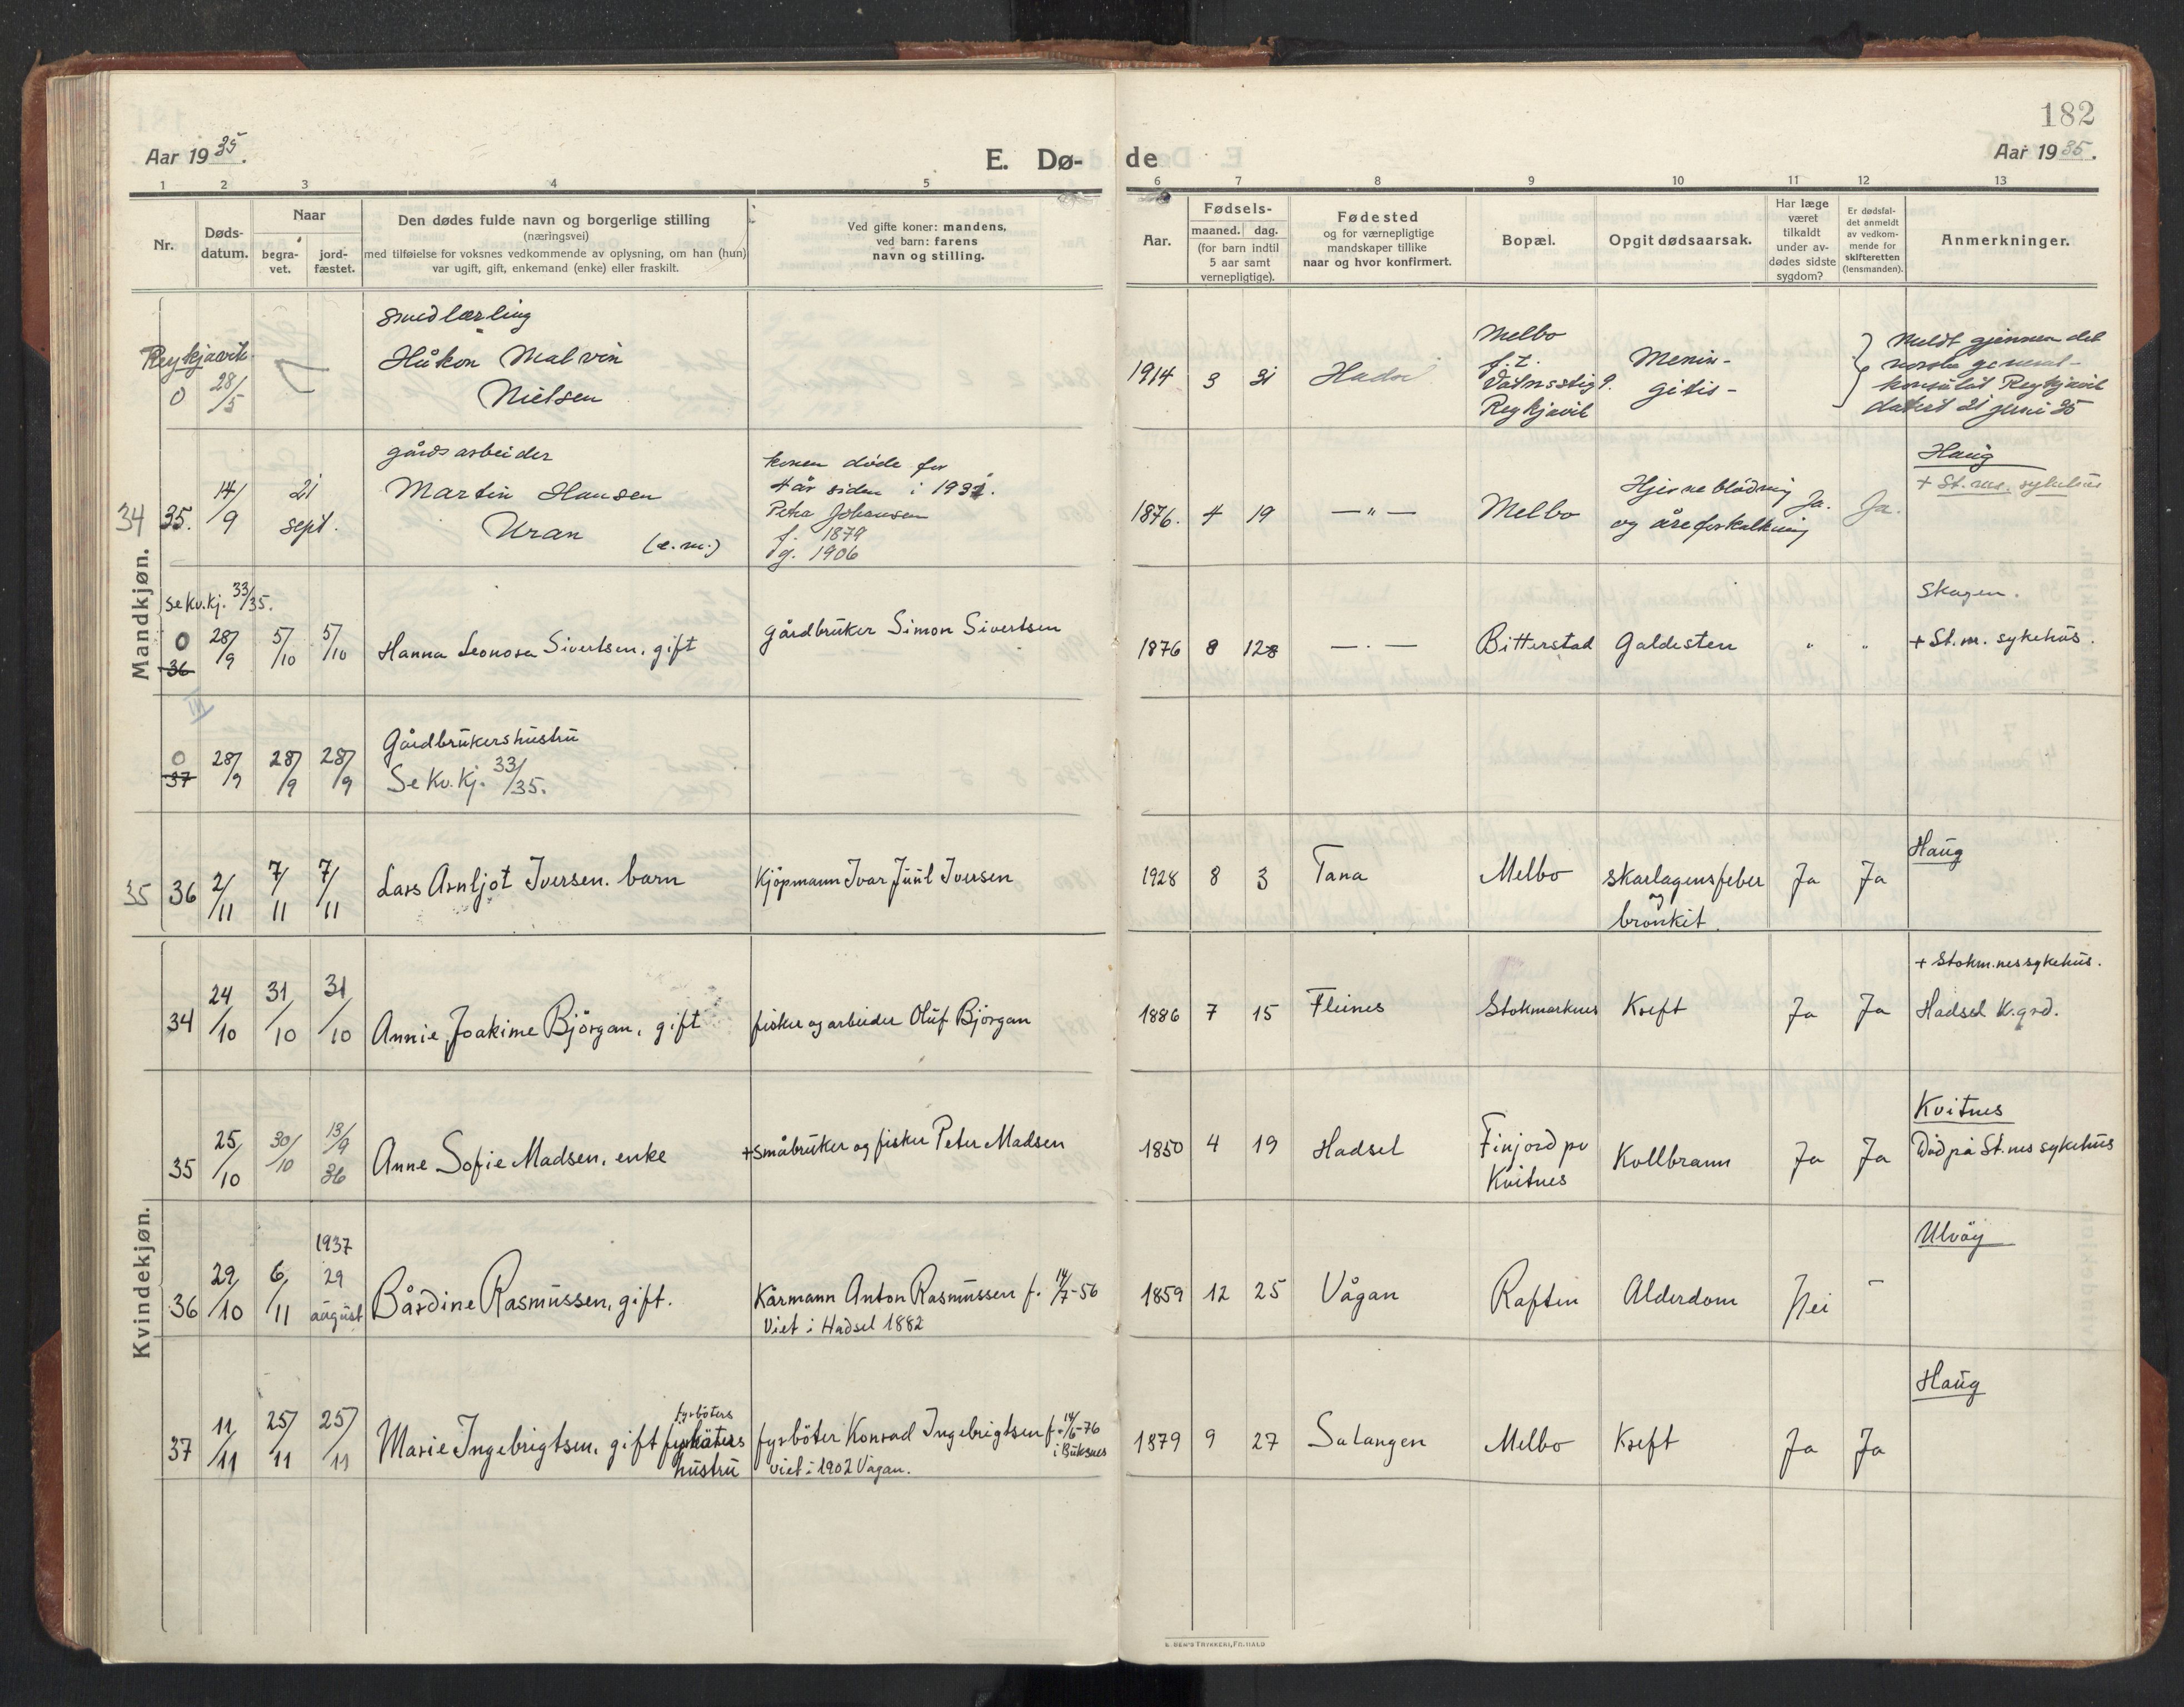 182
Aar 1935.
E. Dø-
de
Aar 1935.
1 2 3 4 5 6 7 8 9 10 11 12 13
Nr.
Døds-
datum.
Naar
begra-
vet.
jord-
fæstet.
Den dødes fulde navn og borgerlige stilling
(næringsvei)
med tilføielse for voksnes vedkommende av oplysning, om han (hun)
var ugift, gift, enkemand (enke) eller fraskilt.
Ved gifte koner: mandens,
ved barn: farens
navn og stilling.
Aar.
Fødsels-
maaned. dag.
(for barn indtil
5 aar samt
vernepligtige).
Fødested
og for værnepligtige
mandskaper tillike
naar og hvor konfirmert.
Bopæl.
Opgit dødsaarsak.
Har læge
været
tilkaldt
under av-
dødes sidste
sygdom?
Er dødsfal-
det anmeldt
av vedkom-
mende for
skifteretten
(lensmanden).
Anmerkninger.
Mandkjøn.
Reykjavik
0 28/5
smedlærling
Håkon Malvin
Nielsen
1914 3 31 Hadsel
Melbo
f.t.
Vatnsstig 9.
Reykjavik
Menin-
gitis-
Meldt gjennem det
norske general-
konsulat Reykjavik
datert 21 juni 35
34 35. 14/9 21
sept.
gårdsarbeider
Martin Hansen
Uran (e.m.)
konen døde for
4 år siden i 1931.
Petra Johansen
f. 1879
g. 1906
1876. 4 19 —"— Melbo
Hjerneblødning
og åreforkalkning
Ja. Ja.
Haug
+ St.ms. sykehus
Se Kv.kj. 33/35.
0 36 28/9 5/10 5/10 Hanna Leonora Sivertsen, gift
gårdbruker Simon Sivertsen
1876 8 128 —.— Bitterstad Galdesten " "
Skagen.
+ St.m. sykehus.
III
0 37 28/9 28/9 28/9
Gårdbrukershustru
Se Kv.kj. 33/35.
35 36 2/11 7/11 7/11 Lars Arnljot Iversen. barn
Kjøpmann Ivar Juul Iversen
1928 8 3 Tana Melbo
skarlagensfeber
og
bronkit.
Ja Ja
Haug
Kvindekjøn.
34 24/10 31/10 31/10 Annie Joakime Bjørgan, gift
fisker og arbeider Oluf Bjørgan
1886 7 15 Fleines Stokmarknes Kreft Ja Ja
+ Stokm.nes sykehus.
Hadsel K.grd.
35 25/10 30/10 13/9 36 Anne Sofie Madsen, enke
+ småbruker og fisker Peter Madsen
1850 4 19 Hadsel
Finjord pr
Kvitnes
Kollbrann Ja Ja
Kvitnes
Død på St.nes sykehus
36 29/10 6/11
1937
29
august
Bårdine Rasmussen, gift.
Kårmann Anton Rasmussen f. 14/7-56
Viet i Hadsel 1882
1859 12 25 Vågan Raften Alderdom Nei —
Ulvøy
37 11/11 25/11 25/11 Marie Ingebrigtsen, gift
fyrbøters
hustru
fyrbøter Konrad Ingebrigtsen f. 14/6-76
i Buksnes
viet i 1902 Vågan.
1879 9 27 Salangen Melbo Kreft Ja Ja
Haug
E. SEM'S TRYKKERI, FR.HALD